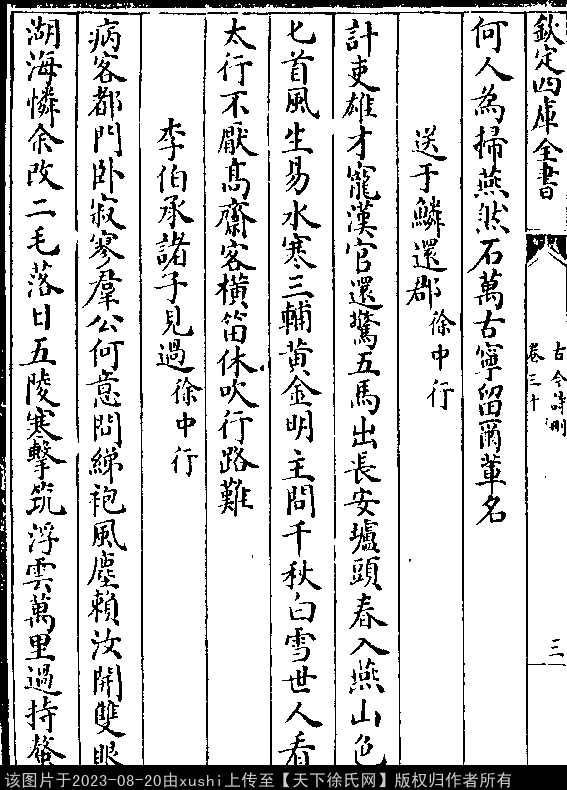 欽定四庫全書
古今詩刪
卷三十
三
何人為掃燕然石萬古寧留爾輩名
送于鱗還郡徐中行
計吏雄才寵漢官還驚五馬出長安壚頭春入燕山色
匕首風生易水寒三輔黃金明主問千秋白雪世人看
太行不厭髙齋客橫笛休吹行路難
李伯承諸子見過徐中行
病客都門卧寂寥羣公何意問綈袍風塵賴汝開雙眼
湖海憐余改二毛落日五陵寒擊筑浮雲萬里過持螯
该图片于2023-08-20由xushi上传至【天下徐氏网】版权归作者所有